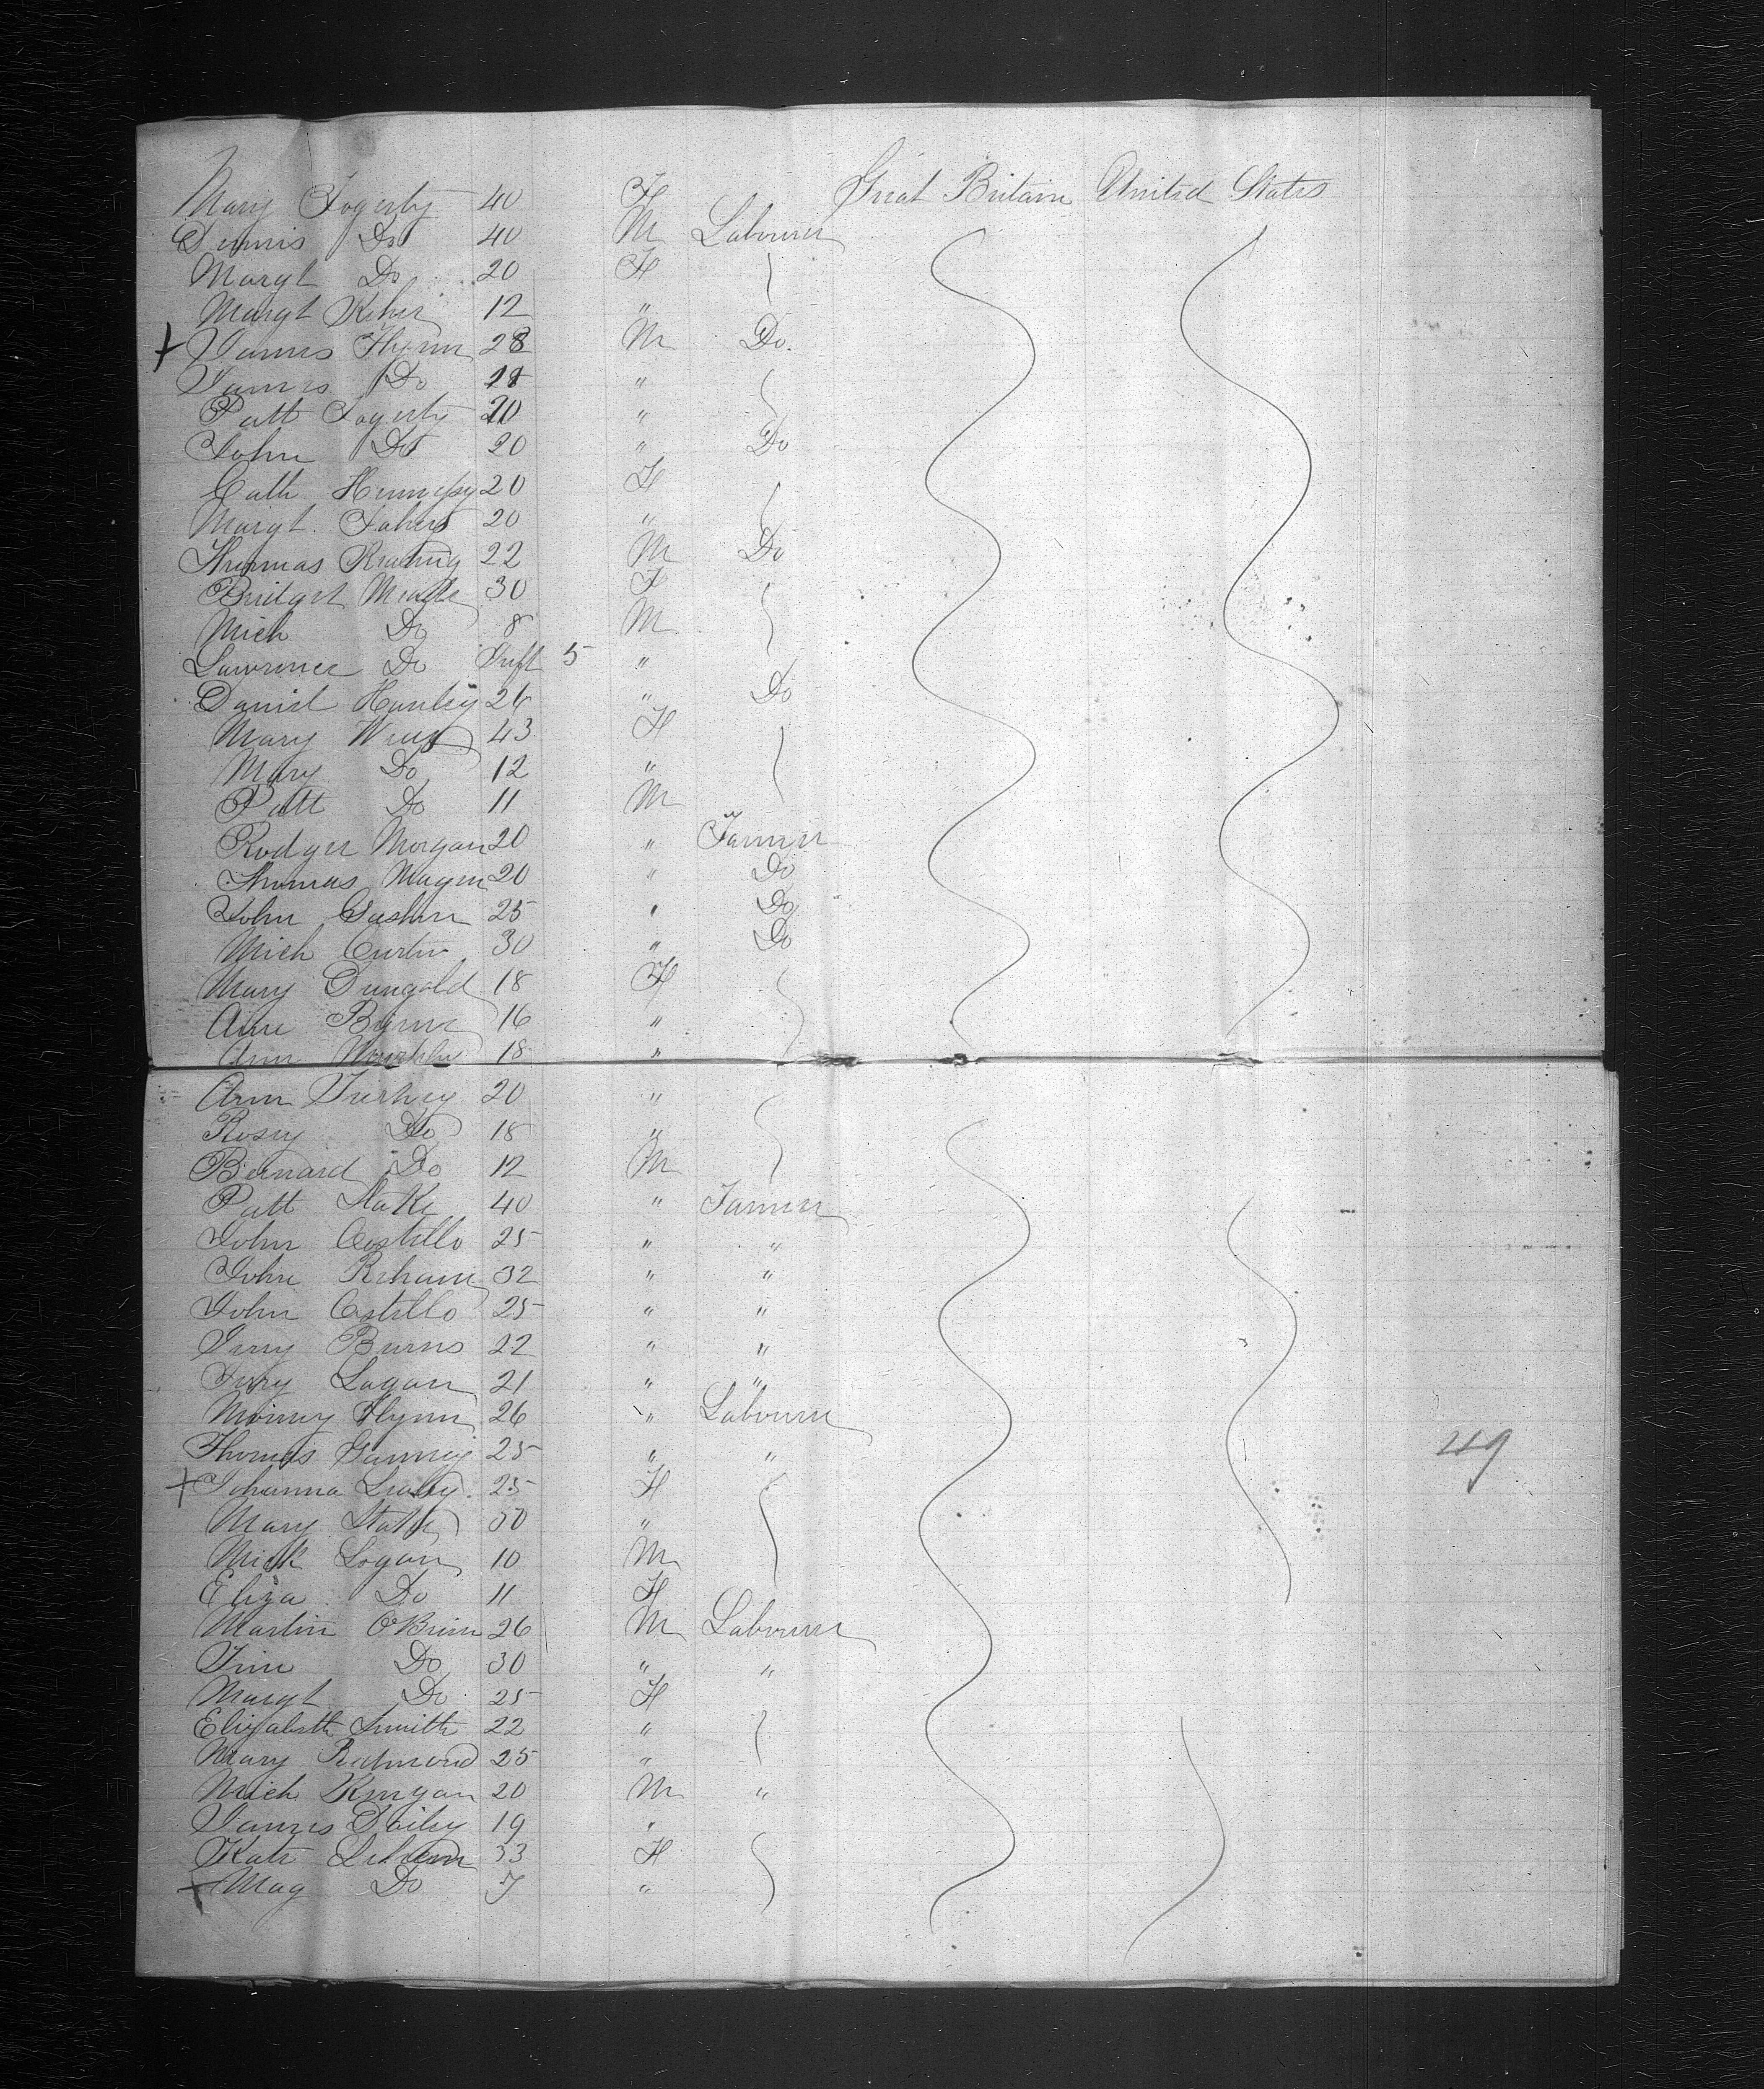 Mary Fogerty 40 F Great Britain United States
Dennis Do 40 M Labourer
Margt Do 20 F
Margt Keher 12 "
+ James Flynn 28 M Do.
James Do "
Patt Fogerty 20 "
John Do 20 " Do
Cath Hennessy 20 F
Margt. Fahey 20 "
Thomas Keating 22 M Do
Bridget Meade 30 F
Mich Do 8 M
Lawrence Do Inft 5 "
Daniel Hanley 26 " Do
Mary 43 F
Mary Do 12 "
Patt Do 11 M
Rodger Morgan 20 " Farmer
Thomas Magin 20 " Do
John Cushin 25 " Do
Mich Curtin 30 " Do
Mary Dungald 18 F
Ann Byrne 16 "
Ann 18 "
Ann Tierney 20 "
Rosey Do 18 "
Bernard Do 12 M
Patt Slake 40 " Farmer
John Costillo 25 " "
John Rehanu 32 " "
John Costillo 25 " "
Jerry Burns 22 " "
Jery Logan 21 " "
Morney Flynn 26 " Labourer
Thomas Ganney 25 " "
49
+ Johanna Leahy. 25 F
Mary 50 "
Mick Logan 10 M
Eliza Do 11 F
Martin O'Brien 26 M Labourer
Tim Do 30 " "
Margt Do 25 F
Elizabeth Smith 22 "
Mary Redmond 25 "
Mich Kingan 20 M "
James Dailey 19 "
Kate 33 F
+ Mag Do 7 "